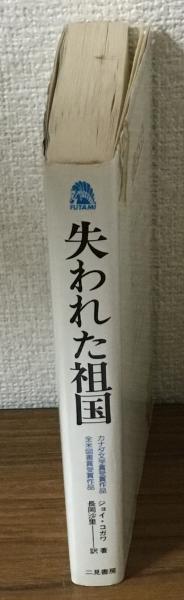 FUTAMI
失われた祖国
カナダ文学賞受賞作品
全米図書賞受賞作品
ジョイ・コガワ 著
長岡沙里 訳
二見書房